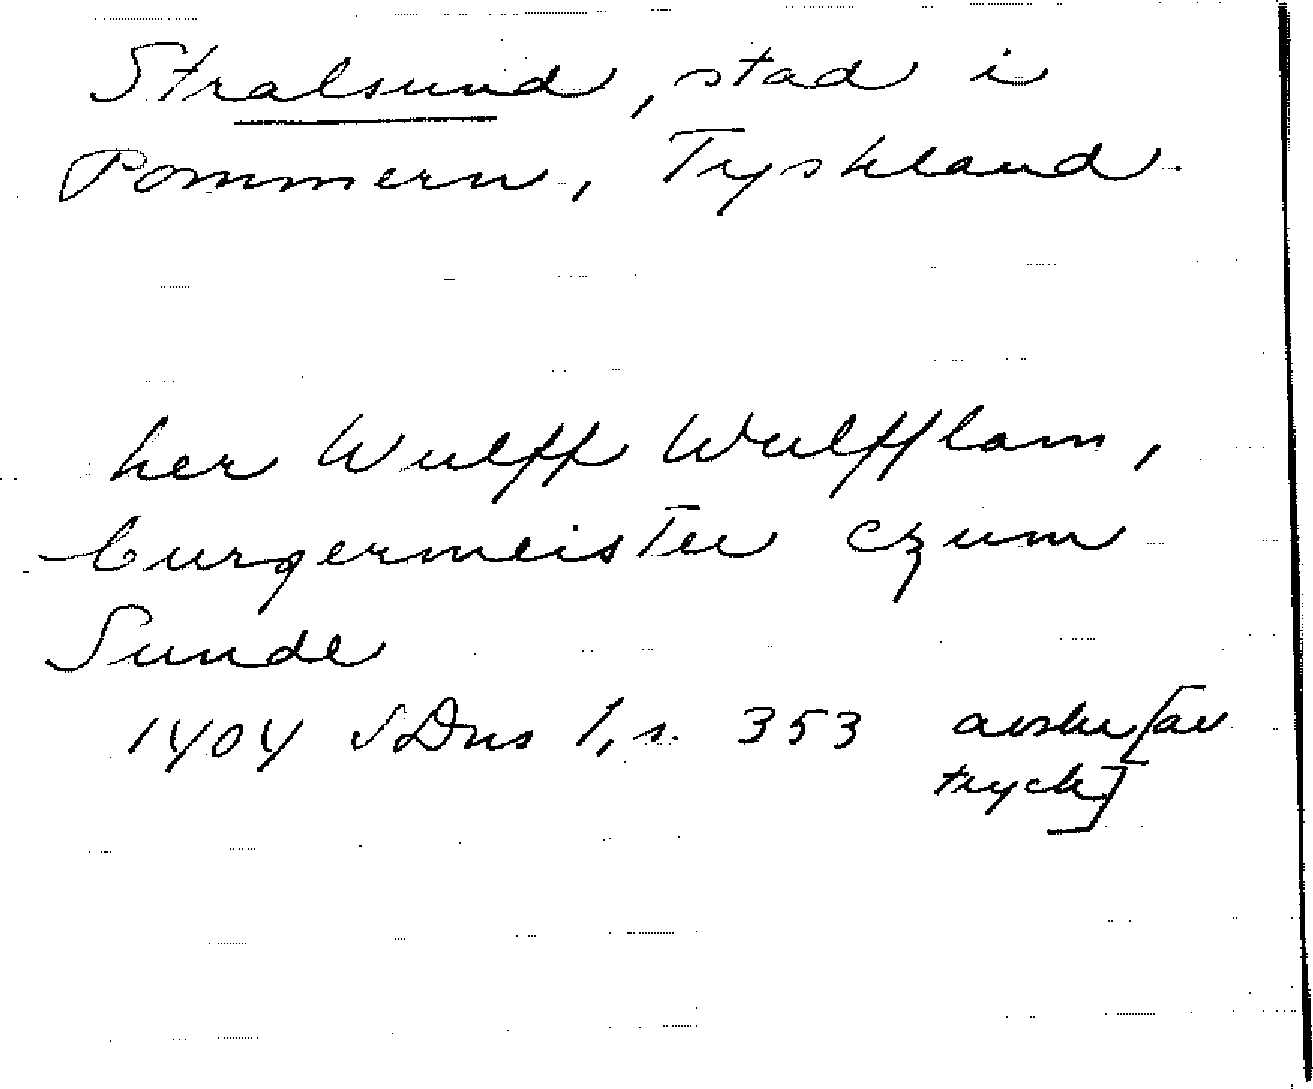 Stralsund, stad i
Pommern, Tyskland.
her Wulff Wulfflam,
burgermeister czum
Sunde
1404 SDns 1, s. 353 avskr [av
tryck]